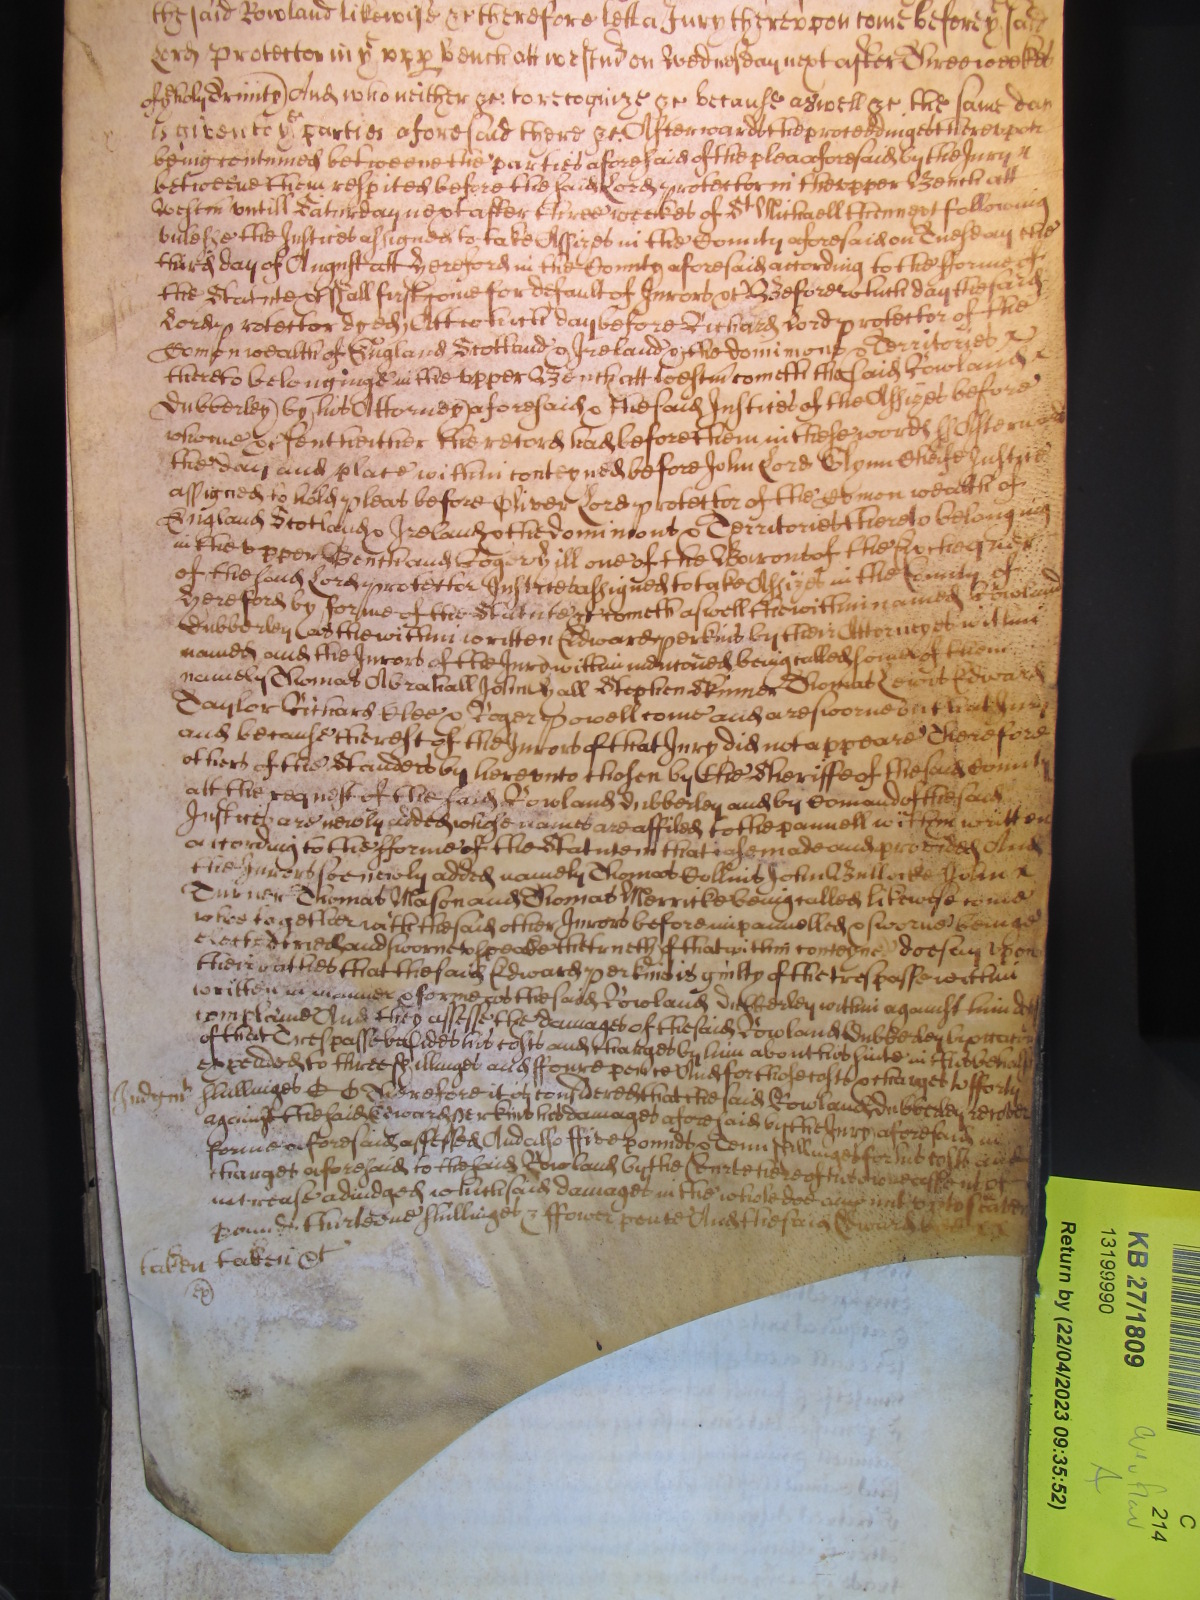 the said Rowland likewise &c therefore lett a Jury thereupon come before ye said
Lord Protector in ye upp bench att Westm on Wednesday next after Three weekes
of holy Trinity And who neither &c to recognize &c because aswell &c the same day
is given to ye parties aforesaid there &c Afterwards the proceedinges thereupon
being continued betweene the parties aforesaid of the plea aforesaid by the Jury
betweene them respited before the said Lord protector in the upper Bench att
Westm untill Saturday next after three weekes of St Michaell thennext following
unlesse the Justices assigned to take Assizes in the County aforesaid on Tuesday the
third day of August att Hereford in the County aforesaid according to the fforme of
the Statute &c shall first come for default of Jurors &c Before which day the said
Lord protector dyed Att which day before Richard Lord protector of the
Comon wealth of England Scotland & Ireland & the dominions & Territories
thereto belonginge in the upper Bench att Westm cometh the said Rowland
Dubberley by his Attorney aforesaid & the said Justices of the Assizes before
whome &c sent heither the record had before them in these words ss Afterwards
the day and place within conteyned before John Lord Glynn Cheife Justice
assigned to hold pleas before Oliver Lord protector of the Comon wealth of
England Scotland & Ireland & the dominions & Territories thereto belonging
in the upper Bench and Roger Hill one of the Barons of the Exchequer
of the said Lord protector Justices assigned to take Assizes in the County of
Hereford by forme of the Statute &c cometh aswell the within named Rowland
Dubberley as the within written Edward perkins by their Attorneyes within
named and the Jurors of the Jury within mencioned being called some of them
namely Thomas Abrahall John Hall Stephen Skinner Thomas Lewis Edward
Taylor Richard Clee & Roger Powell come and are sworne on that Jury
and because the rest of the Jurors of that Jury did not appeare Therefore
others of the Standers by hereunto chosen by the Sheriffe of the said County
att the request of the said Rowland Dubberley and by Comand of the said
Justices are newly added whose names are affiled to the pannell within written
according to the fforme of the Statute in that case made and provided And
the Jurors soe newly added namely Thomas Collins John Bullocke John
Turner Thomas Mason and Thomas Merricke being called likewise come
who together with the said other Jurors before impannelled & sworne beinge
elected tried and sworne to speake the trueth of that within conteyned doe say upon
their oathes that the said Edward perkins is guilty of the trespasse within
written in manner & forme as the said Rowland Dubberley within against him doth
complaine And they assesse the damages of the said Rowland Dubberley by occacion
of that Trespasse besides his costs and charges by him about his suite in this behalfe
expended to three shillinges and ffoure pence And for those costs & charges to fforty
Judgmt shillinges Therefore it is considered that the said Rowland Dubberley recover
against the said Edward Perkins his damages aforesaid by the Jury aforesaid in
forme aforesaid assessed And also ffive poundes & Tenn shillinges for his costs and
charges aforesaid to the said Rowland by the Court here of his owne assent of
increase adiudged which said damages in the whole doe amount unto seaven
pounds thirteene shillinges & ffower pence And the said Edward
taken taken &c
KB 27/1809
13199990
Return by (22/04/2023 09:35:52)
C
214
A